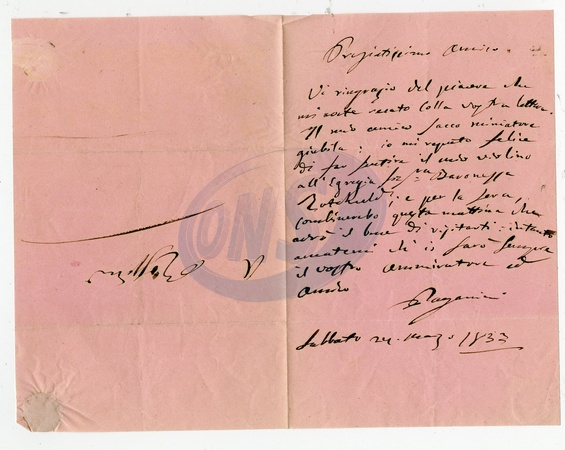 Pregiatissimo Amico.
Vi ringrazio del piacere che
mi avete recato colla vostra lettera.
Il mio amico Sacco miniatore
giubila; io mi reputo felice
di far sentire il mio violino
all'Egregia Sig.ra Baronessa
e per la sera,
combineremo questa mattina che
avrò il bene di visitarvi: intanto
amatemi ch'io sarò sempre
il vostro ammiratore ed
amico
Paganini
Sabbato marzo 1833
ONS